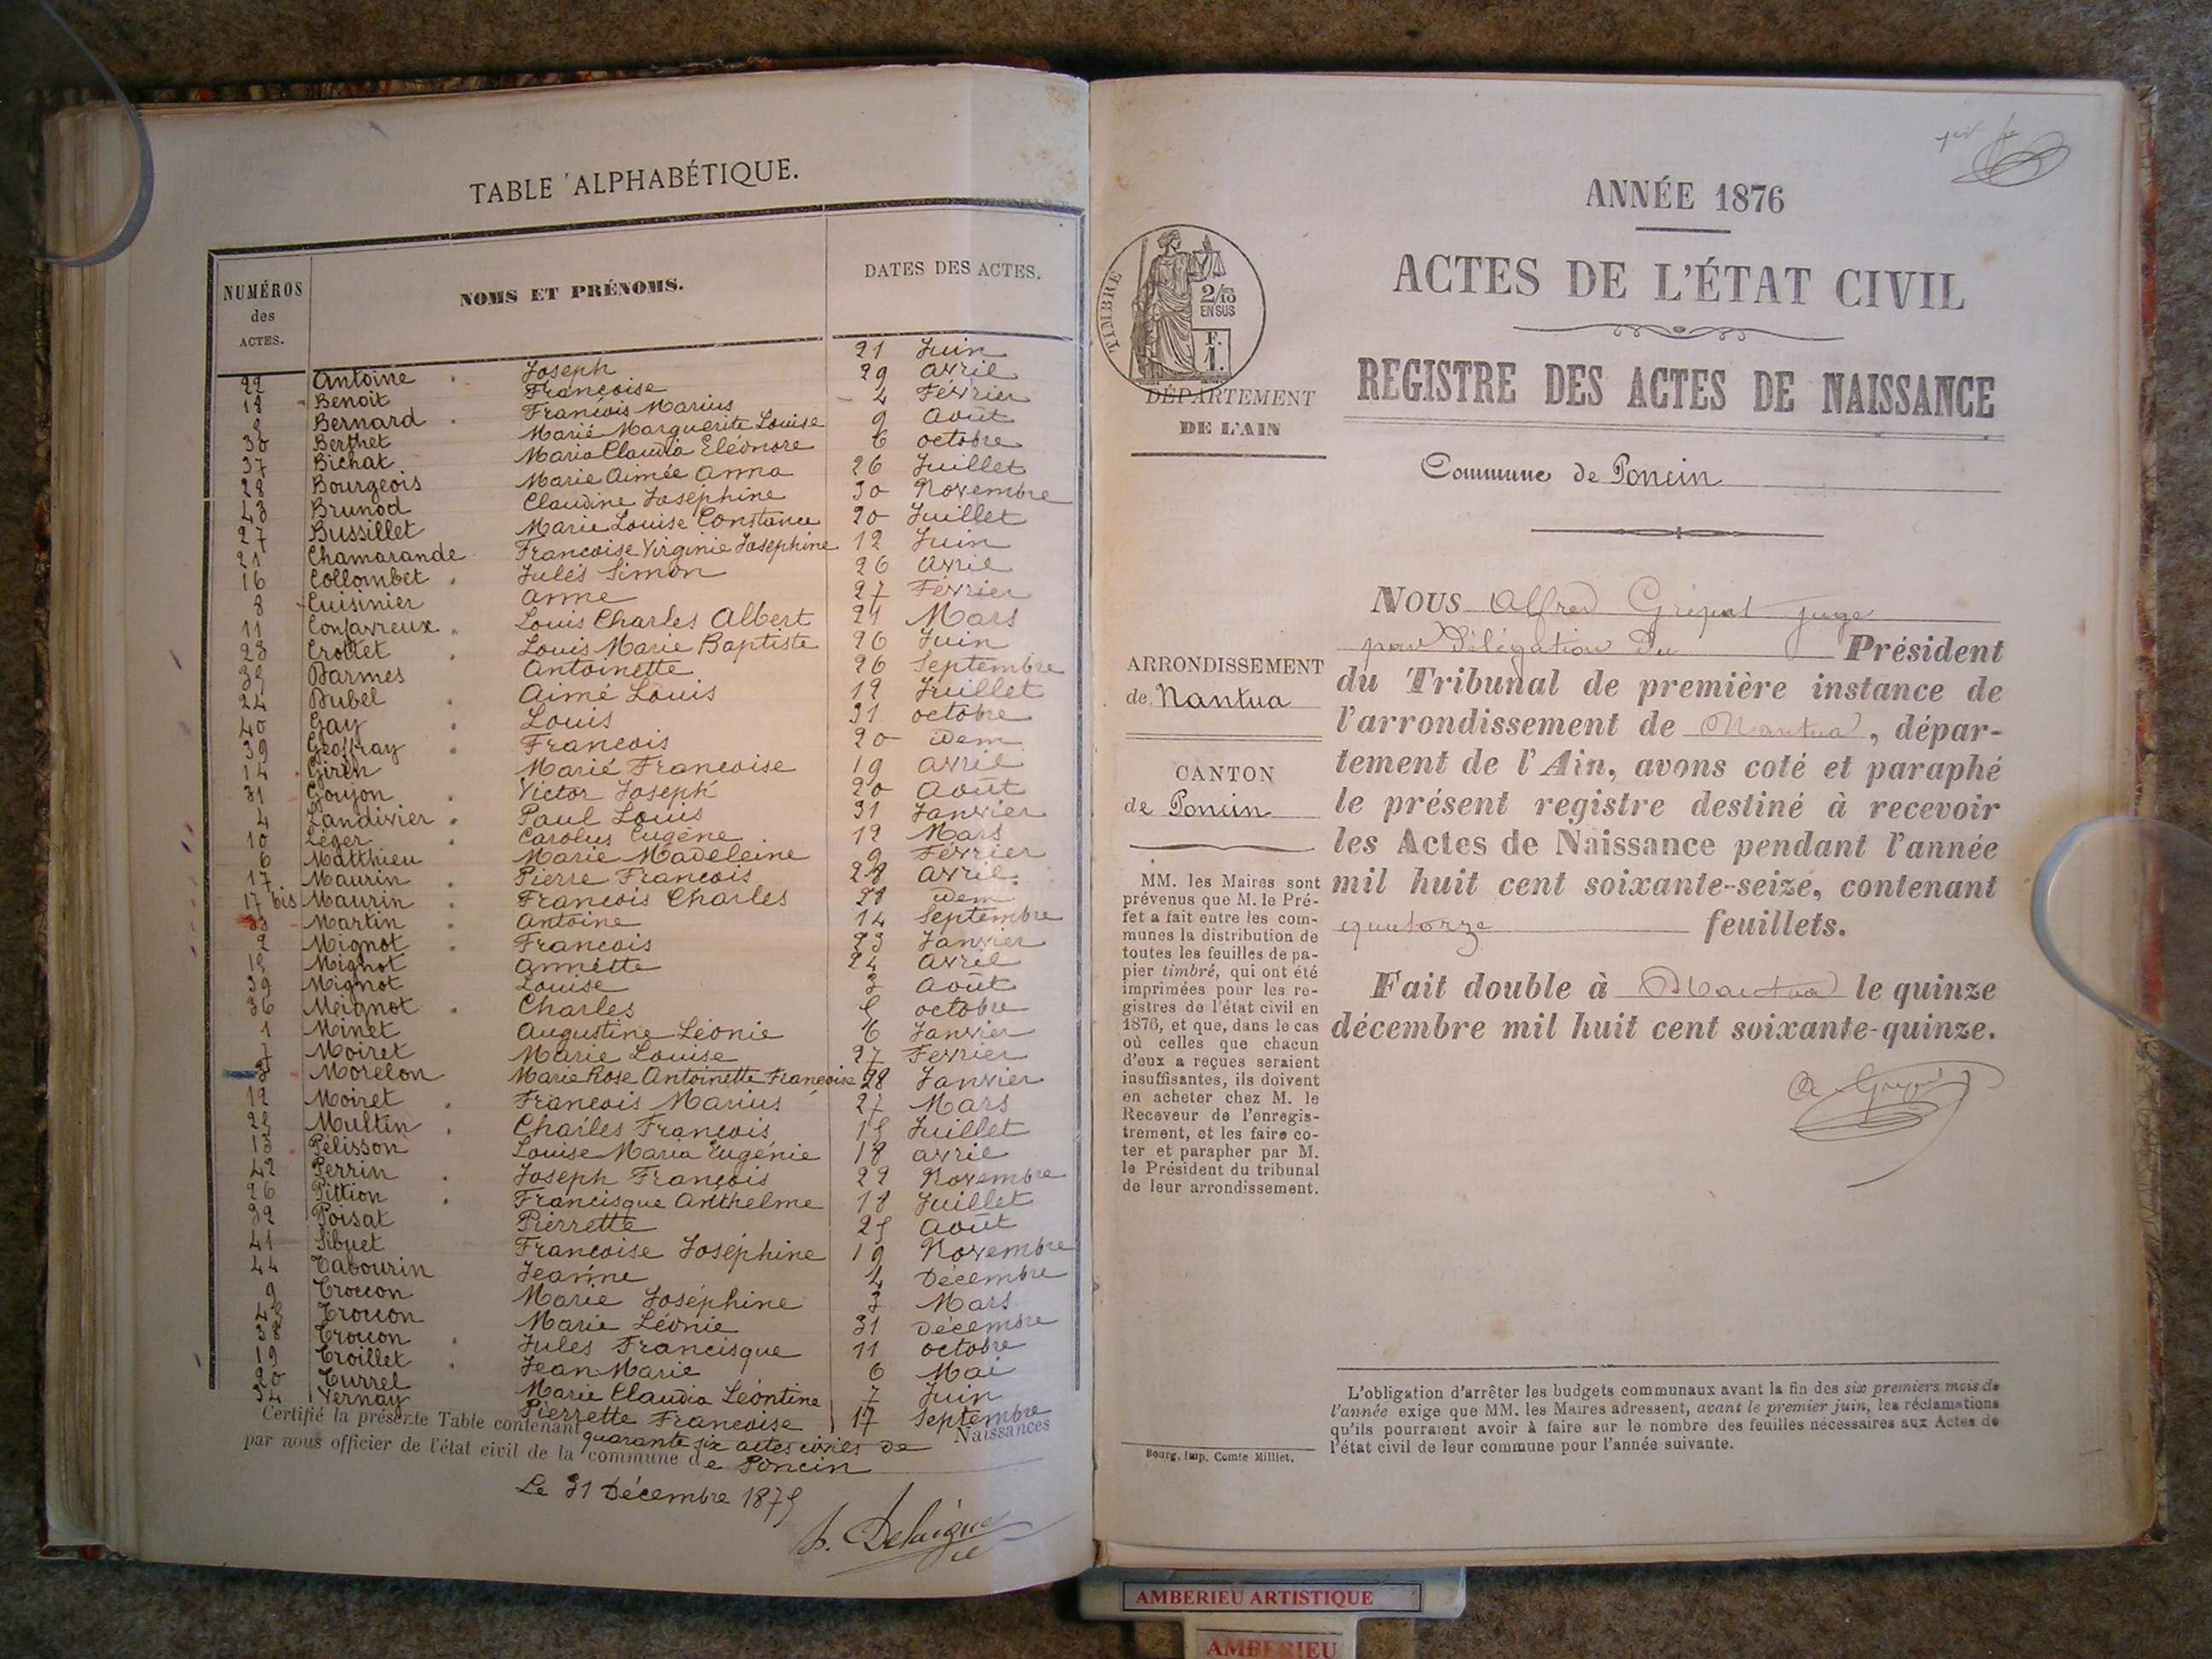 TABLE ALPHABÉTIQUE.
NUMÉROS des ACTES.
NOMS ET PRÉNOMS.
DATES DES ACTES.
22 Antoine Joseph 21 Juin
18 Benoit Françoise 29 avril
5 Bernard François Marius 4 Février
30 Berthet Marie Marguerite Louise 9 Août
37 Bichat Maria Claudia Eléonore 6 octobre
28 Bourgeois Marie Aimée Anna 26 Juillet
43 Brunod Claudine Joséphine 30 Novembre
27 Bussillet Marie Louise Constance 20 Juillet
21 Chamarande Francoise Virginie Joséphine 12 Juin
16 Collombet Jules Simon 26 avril
8 Cuisinier anne 27 Février
11 Confavreux Louis Charles Albert 21 Mars
23 Crottet Louis Marie Baptiste 26 Juin
35 Darmes Antoinette 26 Septembre
24 Dubel Aimé Louis 12 Juillet
40 Gay Louis 31 octobre
39 Geoffray Francois 20 idem
14 Girin Marie Francoise 19 avril
31 Goujon Victor Joseph 20 Août
4 Landivier Paul Louis 31 Janvier
10 Léger Carolus Eugène 12 Mars
6 Matthieu Marie Madeleine 9 Février
17 Maurin Pierre Francois 28 avril
17 bis Maurin Francois Charles 28 idem
33 Martin Antoine 14 Septembre
2 Mignot Francois 23 Janvier
15 Mignot annette 24 avril
Mignot Louise 3 Août
36 Meignot Charles 5 octobre
1 Minet Augustine Léonie 6 Janvier
7 Moiret Marie Louise 27 Février
3 Morelon Marie Rose Antoinette Françoise 28 Janvier
12 Moiret Francois Marius 27 Mars
25 Multin Charles Francois 15 Juillet
13 Pélisson Louise Maria Eugénie 18 avril
42 Perrin Joseph François 22 Novembre
26 Pittion Francisque Anthelme 18 Juillet
32 Poisat Pierrette 25 Août
41 Sibuet Francoise Joséphine 19 Novembre
44 Tabourin Jeanne 4 Décembre
9 Troccon Marie Joséphine 3 Mars
45 Troccon Marie Léonie 31 Décembre
38 Troccon Jules Francisque 11 octobre
19 Troillet Jean-Marie 6 Mai
20 Turrel Marie Claudia Léontine 7 Juin
34 Vernay Pierrette Francoise 17 Septembre
Certifié la présente Table contenant quarante six actes civils de Naissances
par nous officier de l'état civil de la commune de Poncin
Le 31 Décembre 1875
Delaigue
ANNÉE 1876
ACTES DE L'ÉTAT CIVIL
REGISTRE DES ACTES DE NAISSANCE
TIMBRE
2/10
EN SUS
F.
1.
DÉPARTEMENT
DE L'AIN
Commune de Poncin
ARRONDISSEMENT
de Nantua
CANTON
de Poncin
MM. les Maires sont
prévenus que M. le Pré-
fet a fait entre les com-
munes la distribution de
toutes les feuilles de pa-
pier timbré, qui ont été
imprimées pour les re-
gistres de l'état civil en
1876, et que, dans le cas
où celles que chacun
d'eux a reçues seraient
insuffisantes, ils doivent
en acheter chez M. le
Receveur de l'enregis-
trement, et les faire co-
ter et parapher par M.
le Président du tribunal
de leur arrondissement.
NOUS Alfred juge
par Délégation du Président
du Tribunal de première instance de
l'arrondissement de Nantua, dépar-
tement de l'Ain, avons coté et paraphé
le présent registre destiné à recevoir
les Actes de Naissance pendant l'année
mil huit cent soixante-seize, contenant
quatorze feuillets.
Fait double à Nantua le quinze
décembre mil huit cent soixante-quinze.
L'obligation d'arrêter les budgets communaux avant la fin des six premiers mois de
l'année exige que MM. les Maires adressent, avant le premier juin, les réclamations
qu'ils pourraient avoir à faire sur le nombre des feuilles nécessaires aux Actes de
l'état civil de leur commune pour l'année suivante.
Bourg, Imp. Comte Milliet.
AMBERIEU ARTISTIQUE
AMBERIEU